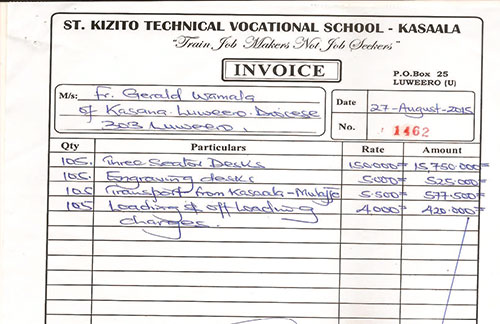 ST. KIZITO TECHNICAL VOCATIONAL SCHOOL - KASAALA
"Train Job Makers Not Job Seekers"
INVOICE
P.O.Box 25
LUWEERO (U)
M/s: Fr. Gerald Wamala
of Kasana-Luweero-Diocese
203 Luweero.
Date 27-August-2015
No. 1462
Qty Particulars Rate Amount
105. Three Seater Desks 150000= 15,750.000=
105. Engraving desks 5000= 525.000=
105 Transport from Kasaala - 5.500= 577.500=
105 Loading & off loading 4000= 420.000=
charges.